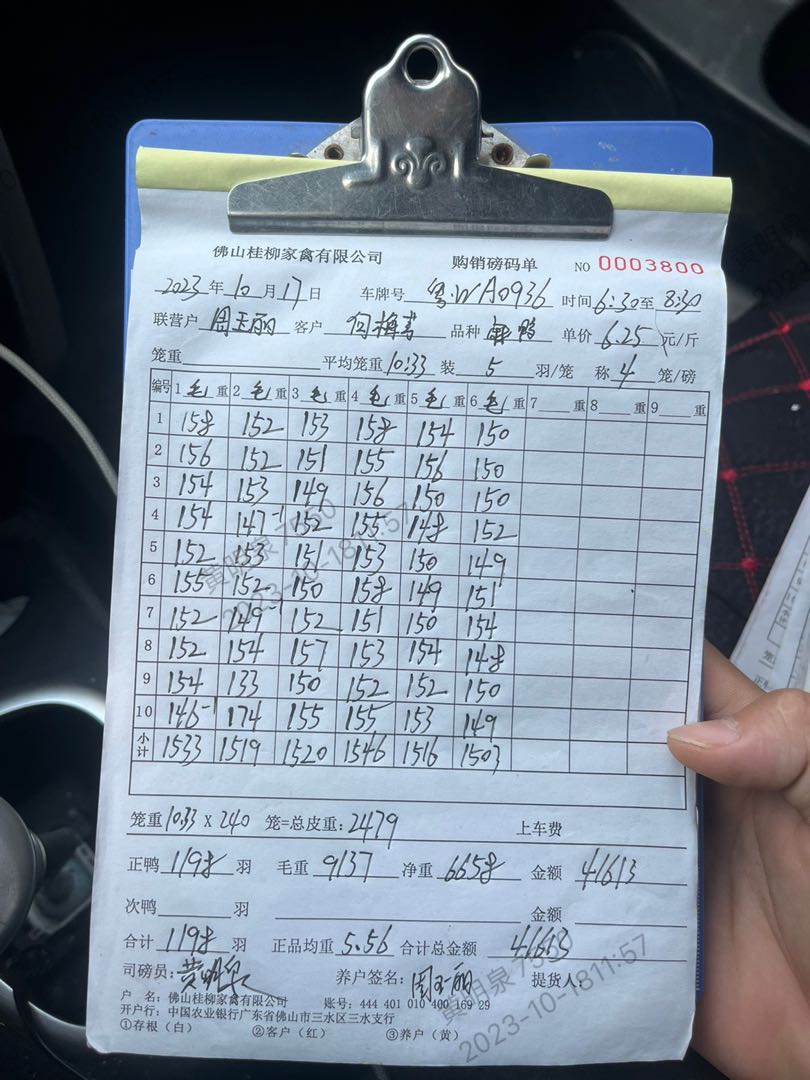 佛山桂柳家禽有限公司 购销磅码单 NO 0003800
2023年10月17日 车牌号 粤WA0936 时间6:30至8:30
联营户 周玉丽 客户 何梅芳 品种 麻鸭 单价 6.25 元/斤
笼重 平均笼重10.33 装 5 羽/笼 称 4 笼/磅
编号 1 毛 重 2 毛 重 3 毛 重 4 毛 重 5 毛 重 6 毛 重 7 重 8 重 9 重
1 158 152 153 158 154 150
2 156 152 151 155 156 150
3 154 153 149 156 150 150
4 154 147-1 152 155 148 152
5 152 153 151 153 150 149
6 155 152 150 158 149 151
7 152 149-1 152 151 150 154
8 152 154 157 153 154 148
9 154 133 150 152 152 150
10 146-1 174 155 155 153 149
小计 1533 1519 1520 1546 1516 1503
笼重 10.33 X 240 笼=总皮重:2479 上车费
正鸭 1198 羽 毛重 9137 净重 6658 金额 41613
次鸭 羽 金额
合计 1198 羽 正品均重 5.56 合计总金额 41613
司磅员:黄明泉 养户签名:周玉丽 提货人:
户 名:佛山桂柳家禽有限公司 账号:444 401 010 400 169 29
开户行:中国农业银行广东省佛山市三水区三水支行
①存根(白) ②客户(红) ③养户(黄)
黄明泉 7550
2023-10-18 11:57
黄明泉 7550
2023-10-18 11:57